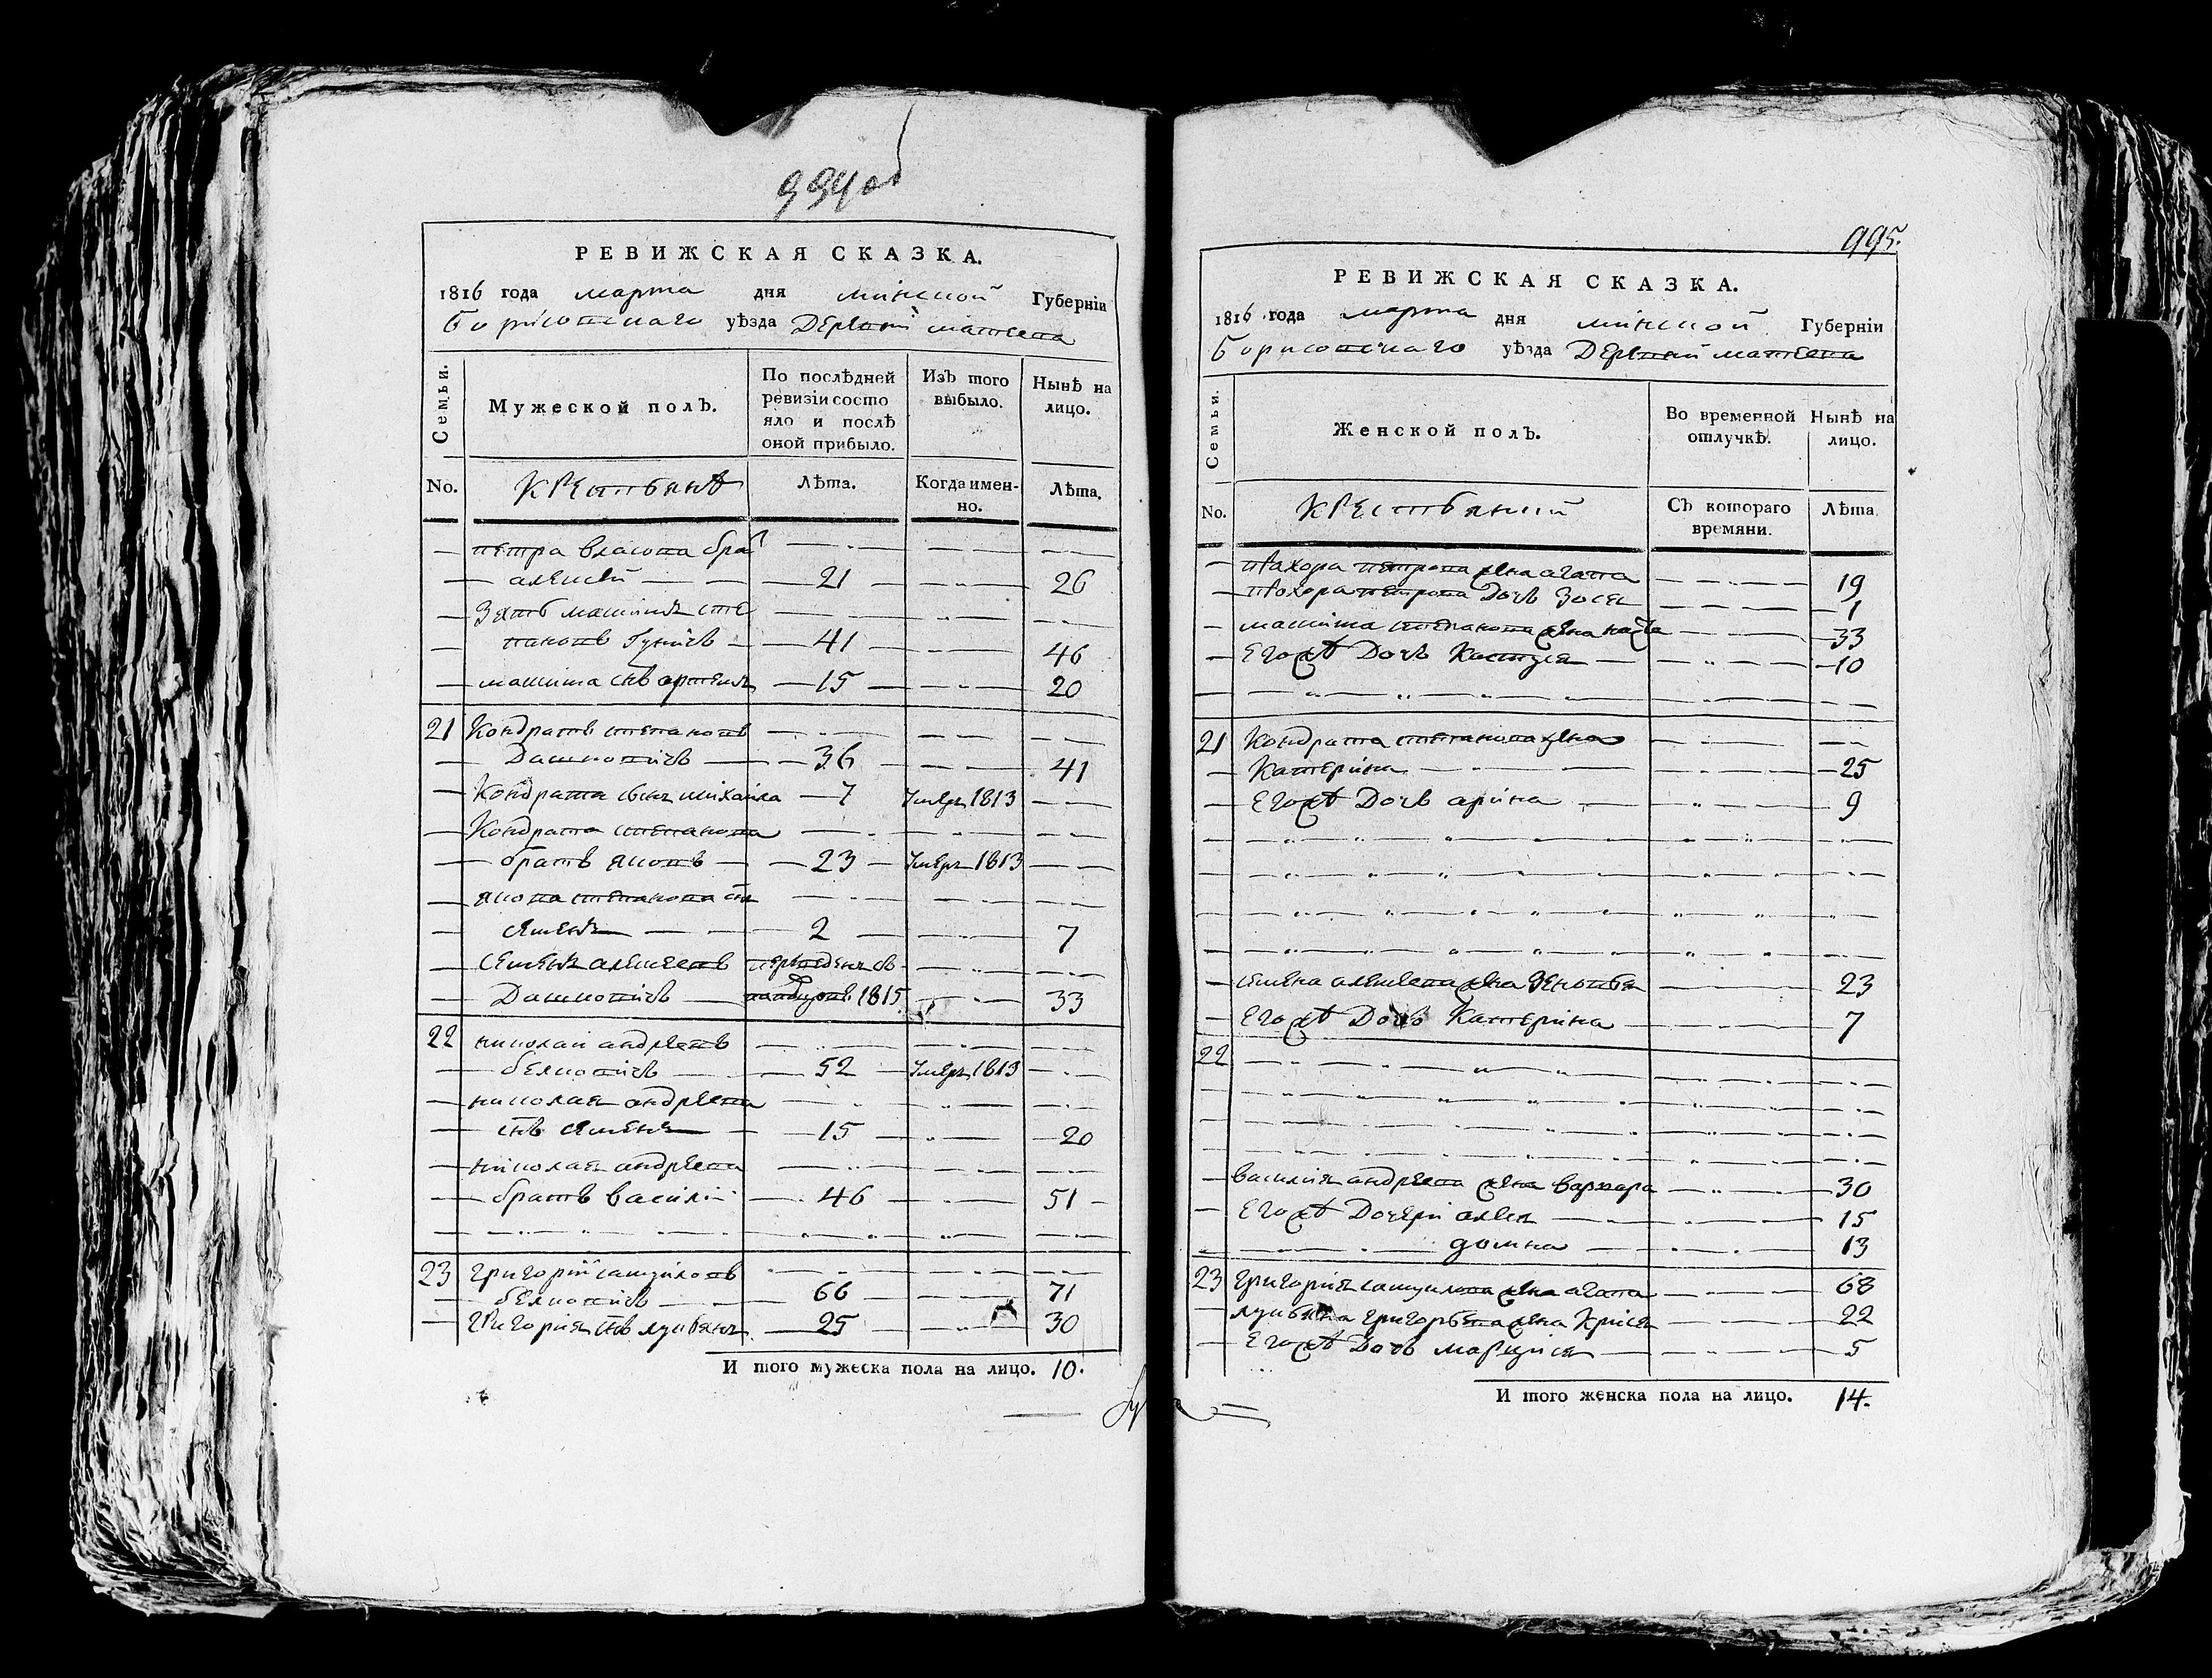 994 об
РЕВИЖСКАЯ СКАЗКА.
1816 года марта дня минской Губернїи
Борисовскаго уѣзда Деревни
Семьи.
Мужеской полъ.
По послѣдней ревизїи состояло и послѣ оной прибыло.
Изъ того выбыло.
Нынѣ на лицо.
No. Крестьянѣ Лѣта. Когда именно. Лѣта.
петра власова бра
алексей 21 26
Зять максимъ сте
пановъ 41 46
максима снъ артемъ 15 20
21 Кондратъ степановъ
Дашкевичъ 36 41
Кондрата сынъ михайла 7 умеръ 1813
Кондрата степанова
братъ яковъ 23 умеръ 1813
якова степанова сн
семенъ 2 7
семенъ алексеевъ переведенъ съ
Дашкевичъ 1815 33
22 николай андреевъ
белкевичъ 52 умеръ 1813
николая андреева
снъ семенъ 15 20
николая андреева
братъ василій 46 51
23 григорій самуйловъ
белкевичъ 66 71
григорія снъ лукьянъ 25 30
И того мужеска пола на лицо. 10.
995.
РЕВИЖСКАЯ СКАЗКА.
1816 года марта дня минской Губернїи
Борисовскаго уѣзда Деревни
Семьи.
Женской полъ.
Во временной отлучкѣ.
Нынѣ на лицо.
No. Крестьянки Съ котораго времяни. Лѣта.
петрова жена агата 19
петрова Дочь Зося 1
максима степанова жена 33
Его жѣ Дочь Кастуся 10
21 Кондрата степанова жена
Катерина 25
Его жѣ Дочь арина 9
семена алексеева жена Зеновья 23
Его жѣ Дочь Катерина 7
22
василія андреева жена варвара 30
Его жѣ Дочери алея 15
домна 13
23 григорія самуилова жена агата 68
лукьяна григорьева жена Крися 22
Его жѣ Дочь маруся 5
И того женска пола на лицо. 14.